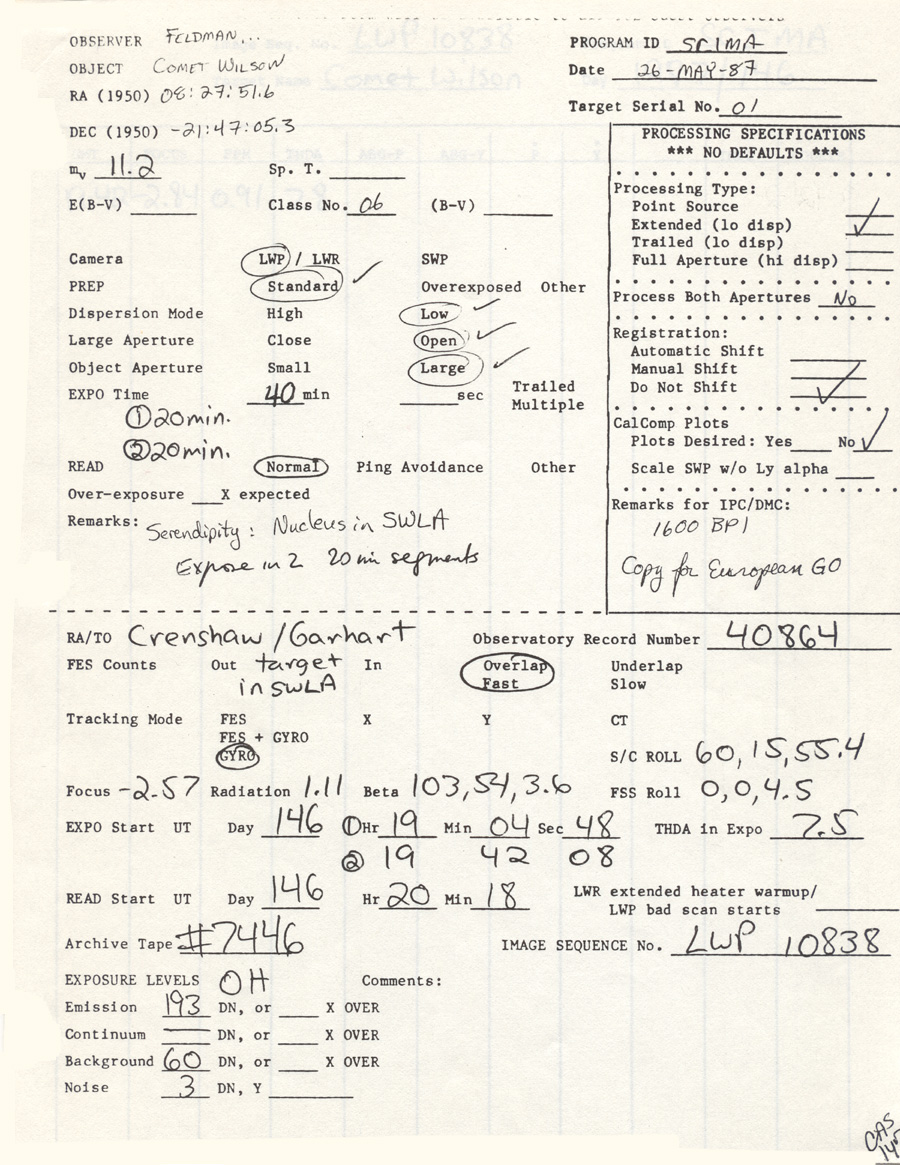 OBSERVER FELDMAN...
PROGRAM ID SCIMA
OBJECT COMET WILSON
Date 26-MAY-87
RA (1950) 08:27:51.6
Target Serial No. 01
DEC (1950) -21:47:05.3
PROCESSING SPECIFICATIONS
*** NO DEFAULTS ***
mv 11.2 Sp. T.
E(B-V) Class No. 06 (B-V)
Processing Type:
Point Source
Extended (lo disp) ✓
Trailed (lo disp)
Full Aperture (hi disp)
Camera LWP / LWR SWP
PREP Standard ✓ Overexposed Other
Process Both Apertures No
Dispersion Mode High Low ✓
Large Aperture Close Open ✓
Object Aperture Small Large ✓
Registration:
Automatic Shift
Manual Shift
Do Not Shift ✓
EXPO Time 40 min sec Trailed
Multiple
① 20 min.
② 20 min.
CalComp Plots
Plots Desired: Yes No ✓
Scale SWP w/o Ly alpha
READ Normal Ping Avoidance Other
Over-exposure X expected
Remarks: Serendipity: Nucleus in SWLA
Expose in 2 20 min segments
Remarks for IPC/DMC:
1600 BPI
Copy for European GO
RA/TO Crenshaw/Garhart Observatory Record Number 40864
FES Counts Out target In Overlap Underlap
in SWLA Fast Slow
Tracking Mode FES X Y CT
FES + GYRO
GYRO S/C ROLL 60, 15, 55.4
Focus -2.57 Radiation 1.11 Beta 103, 54, 3.6 FSS Roll 0, 0, 4.5
EXPO Start UT Day 146 ① Hr 19 Min 04 Sec 48 THDA in Expo 7.5
② 19 42 08
READ Start UT Day 146 Hr 20 Min 18 LWR extended heater warmup/
LWP bad scan starts
Archive Tape #7446 IMAGE SEQUENCE No. LWP 10838
EXPOSURE LEVELS OH Comments:
Emission 193 DN, or X OVER
Continuum — DN, or X OVER
Background 60 DN, or X OVER
Noise 3 DN, Y
CAS